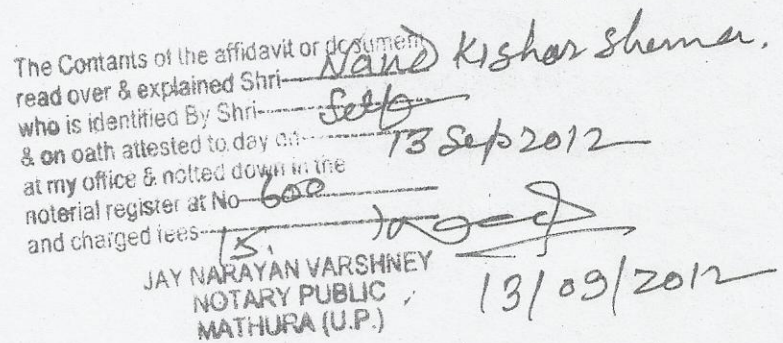 The Contants of the affidavit or document
read over & explained Shri Nand Kishor Sharma.
who is identified By Shri Self
& on oath attested to day on 13 Sep 2012
at my office & notted down in the
noterial register at No 600
and charged fees 15.
JAY NARAYAN VARSHNEY
NOTARY PUBLIC
MATHURA (U.P.)
13/09/2012